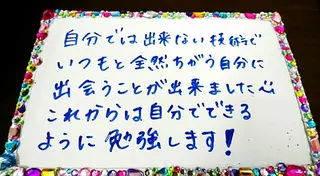 自分では出来ない技術で
いつもと全然ちがう自分に
出会うことが出来ました
これからは自分でできる
ように勉強します!